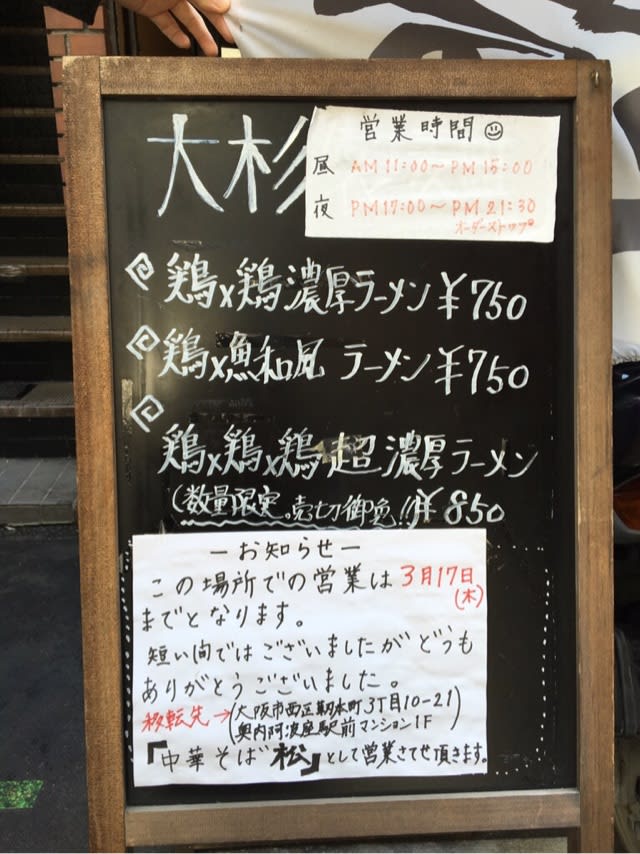 大杉
営業時間☺
昼 AM 11:00～PM 15:00
夜 PM 17:00～PM 21:30
オーダーストップ
鶏×鶏濃厚ラーメン ¥750
鶏×魚和風 ラーメン ¥750
鶏×鶏×鶏 超濃厚ラーメン
(数量限定。売切御免!! ¥850
ーお知らせー
この場所での営業は3月17日(木)
までとなります。
短い間ではございましたがどうも
ありがとうございました。
移転先→(大阪市西区靭本町3丁目10-21
奥内阿波座駅前マンション1F)
「中華そば 松」として営業させて頂きます。